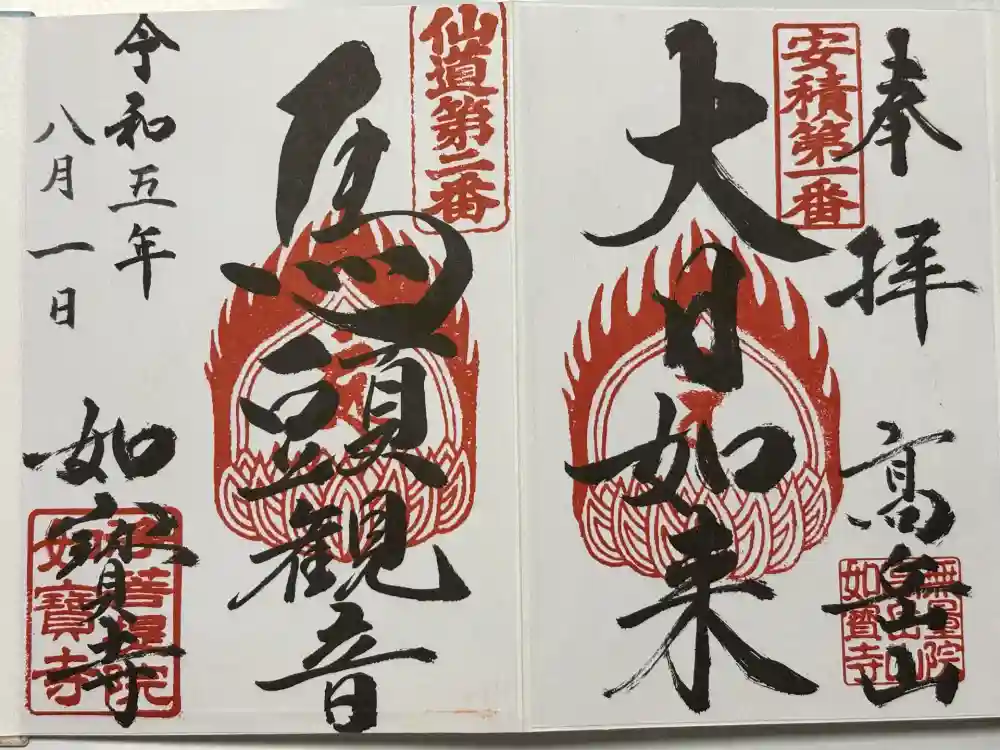 奉拝
高岳山
安積第一番
大日如来
無量院
如寳寺
仙道第二番
馬頭観音
令和五年
八月一日
如寳寺
菩提院
如寳寺